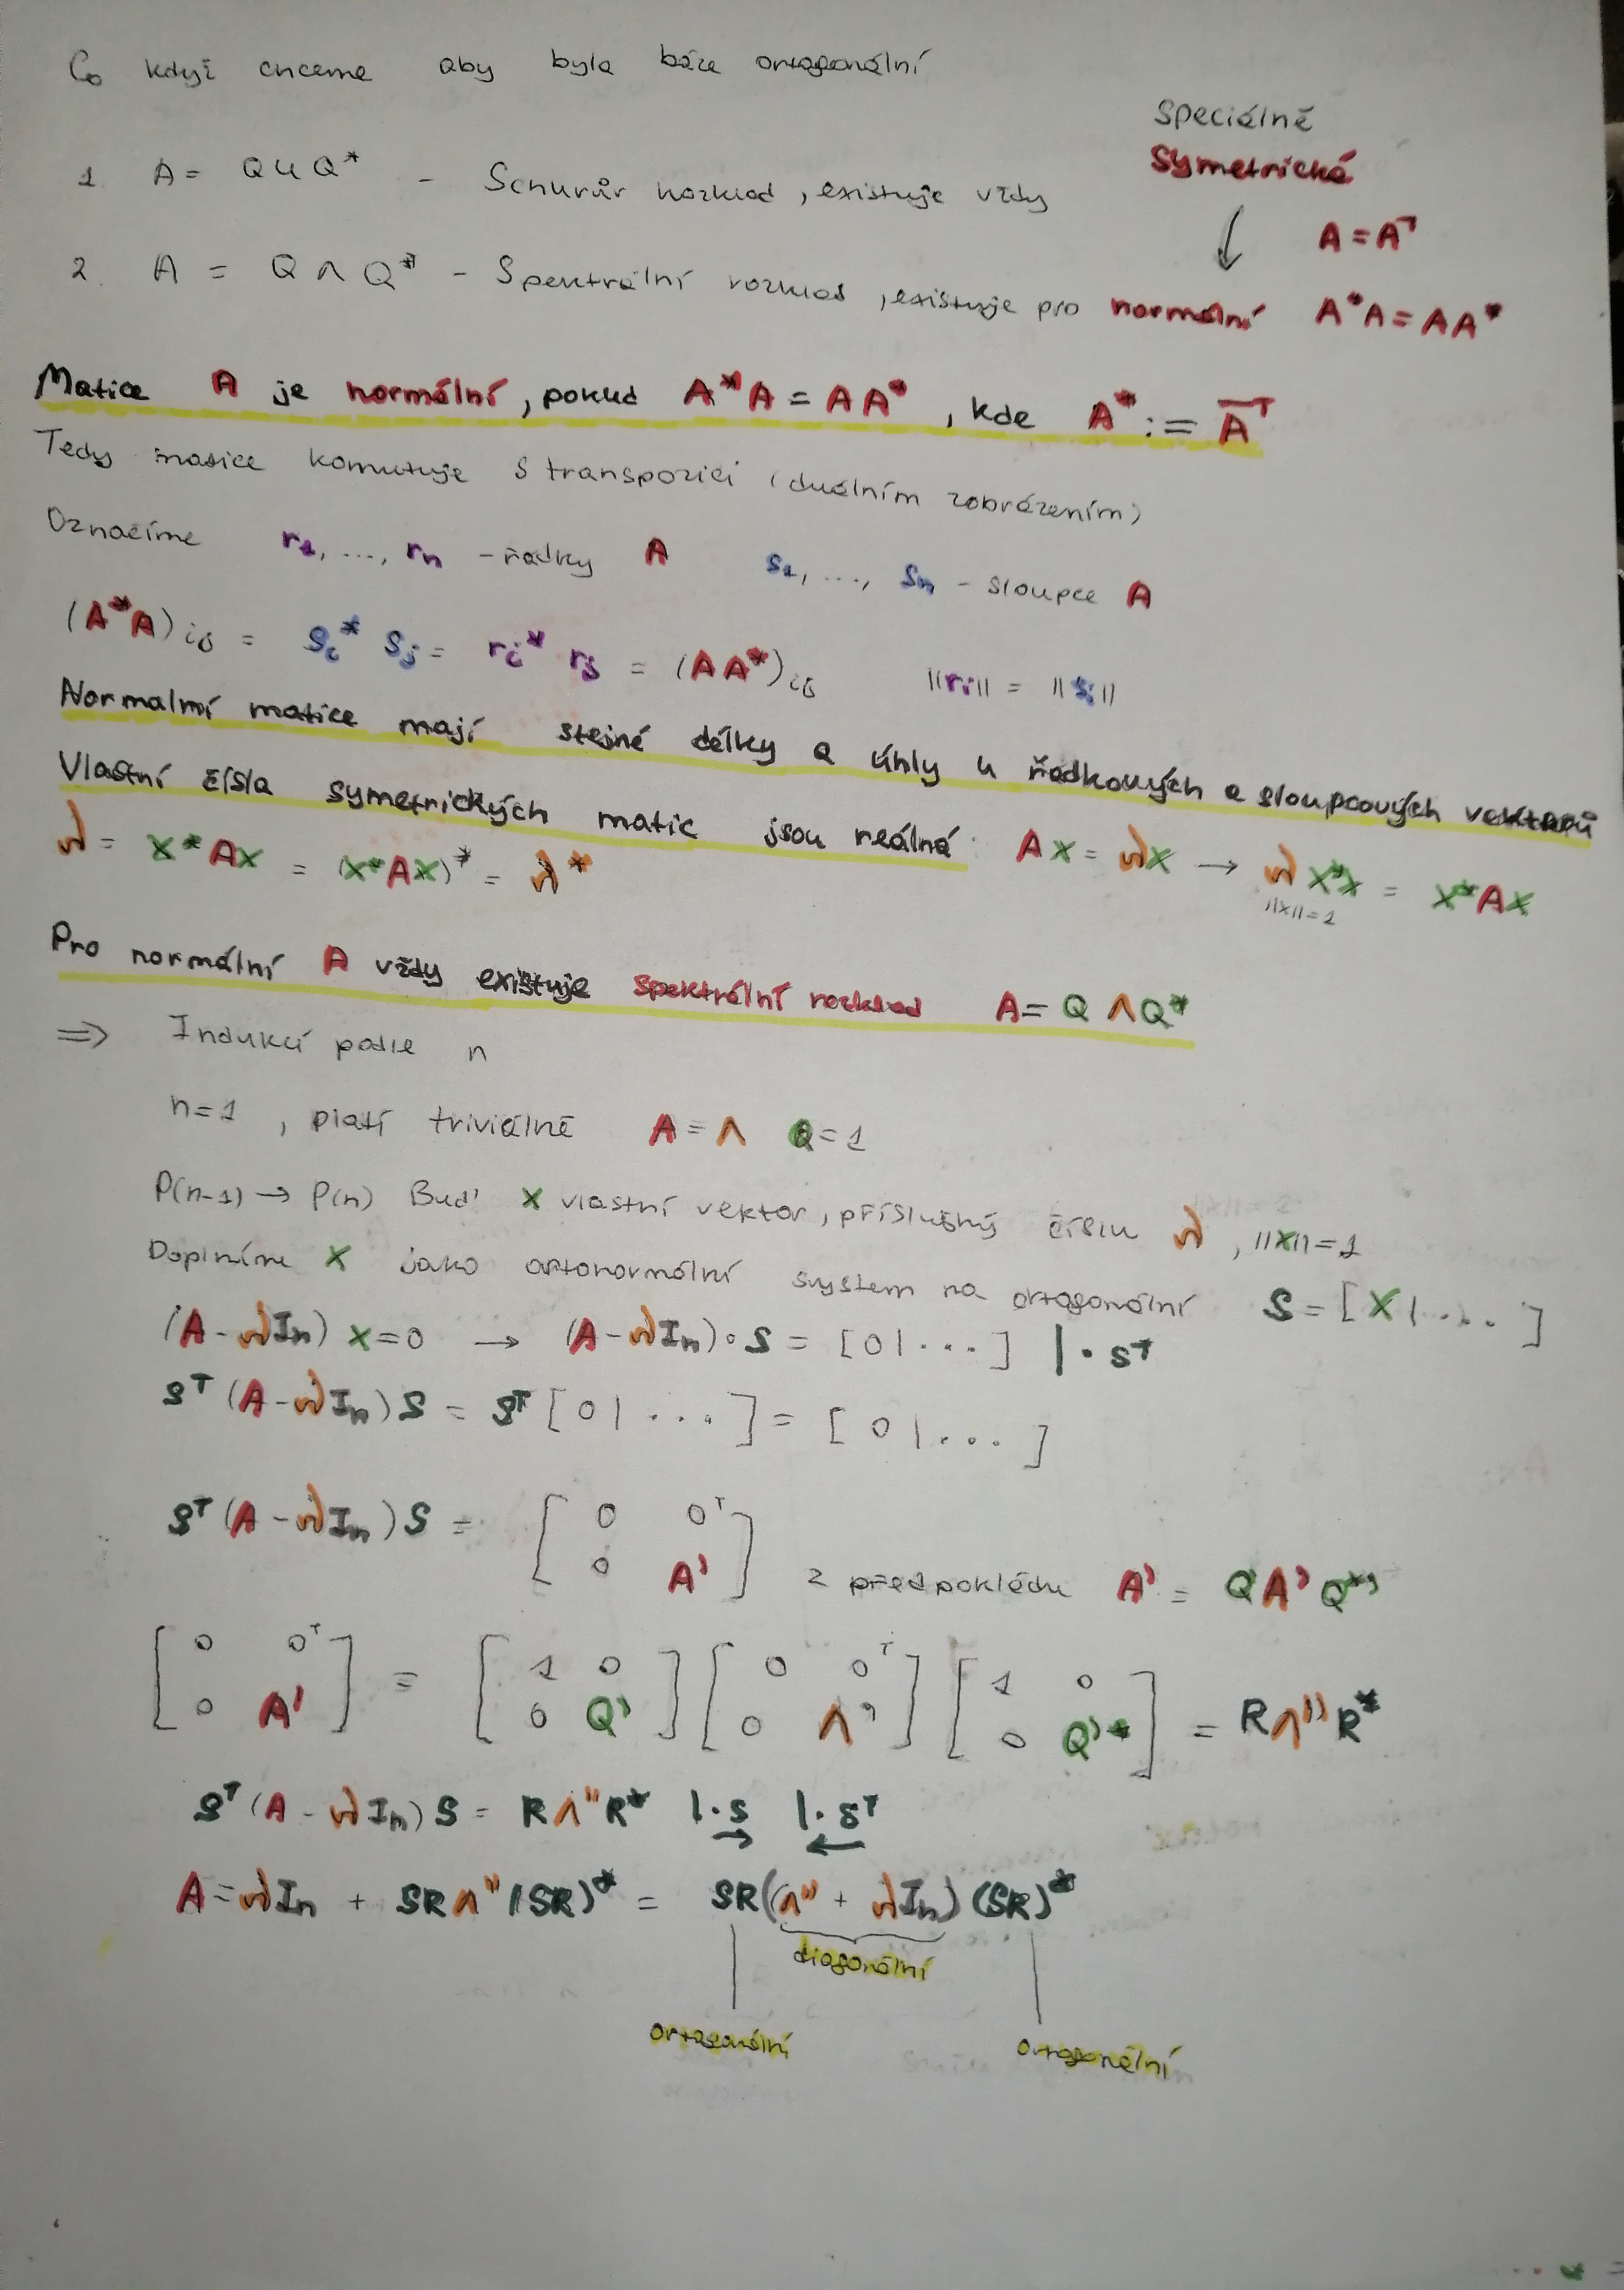 Co když chceme aby byla báze ortogonální
Speciálně
symetrická
1. A = QUQ* - Schurův rozklad, existuje vždy
A = Aᵀ
2. A = QΛQ* - Spektrální rozklad, existuje pro normální A*A = AA*
Matice A je normální, pokud A*A = AA*, kde A* := A̅ᵀ
Tedy matice komutuje s transpozicí (duálním zobrázením)
Označíme r₁, ..., rₙ - řádky A s₁, ..., sₙ - sloupce A
(A*A)ᵢⱼ = sᵢ* sⱼ = rᵢ* rⱼ = (AA*)ᵢⱼ ||rᵢ|| = ||sᵢ||
Normalní matice mají stejné délky a úhly u řádkových a sloupcových vektorů
Vlastní čísla symetrických matic jsou reálná: Ax = λx → λx*x = x*Ax
||x||=1
λ = x*Ax = (x*Ax)* = λ*
Pro normální A vždy existuje spektrální rozklad A = QΛQ*
⇒ Indukcí podle n
n=1, platí triviálně A = Λ Q = 1
P(n-1) → P(n) Buď x vlastní vektor, příslušný číslu λ, ||x||=1
Doplníme x jako ortonormální system na ortogonální S = [x|...]
(A - λIₙ) x = 0 → (A - λIₙ)·S = [0|...] |·Sᵀ
Sᵀ(A - λIₙ)S = Sᵀ[0|...] = [0|...]
Sᵀ(A - λIₙ)S = [ 0 0ᵀ
0 A' ] z předpokládu A' = Q'Λ'Q*'
[ 0 0ᵀ ] = [ 1 0 ] [ 0 0ᵀ ] [ 1 0 ]
[ 0 A' ] [ 0 Q' ] [ 0 Λ' ] [ 0 Q'* ] = RΛ''R*
Sᵀ(A - λIₙ)S = RΛ''R* |·S |·Sᵀ
→ ←
A = λIₙ + SRΛ''(SR)* = SR(Λ'' + λIₙ)(SR)*
diagonální
ortogonální ortogonální